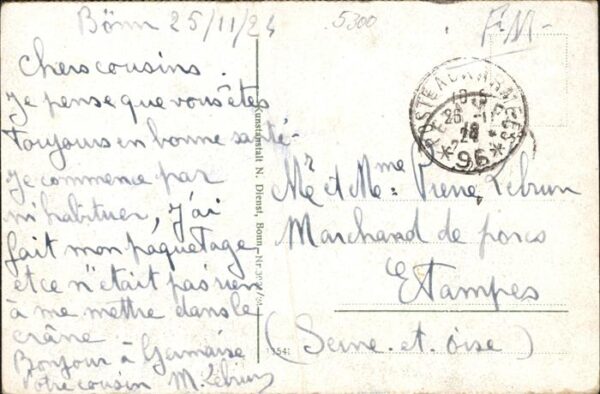 Bönn 25/11/24
5300
F-M-
Chers cousins.
Je pense que vous êtes
toujours en bonne santé-
Je commence par
m'habituer, J'ai
fait mon paquetage
et ce n'était pas rien
à me mettre dans le
crâne
Bonjour à Germaise
Votre cousin M. Lebrun
Kunstanstalt N. Dienst, Bonn
POSTE AUX ARMEES
*96*
Mr et Mme Pierre Lebrun
Marchand de porcs
Etampes
(Seine. et. Oise)